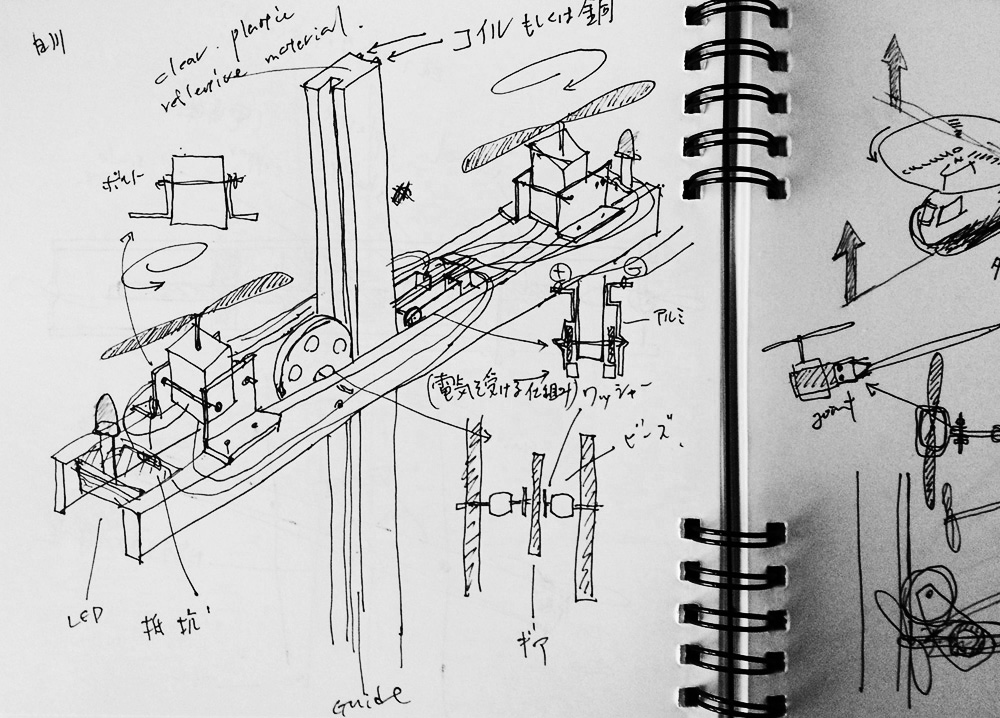 白川
clear. plastic
reflective material.
コイル もしくは 銅
ボルト
+
-
アルミ
(電気を受ける仕組み)
ワッシャー
ビーズ.
LED
抵抗
ギア
Guide
joint